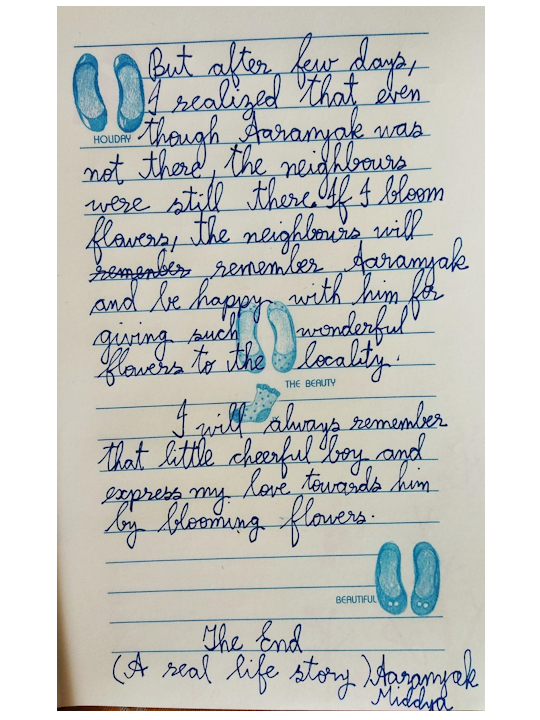 But after few days,
I realized that even
HOLIDAY
though Aaranyak was
not there, the neighbours
were still there. If I bloom
flowers, the neighbours will
remember remember Aaranyak
and be happy with him for
giving such wonderful
flowers to the locality.
THE BEAUTY
I will always remember
that little cheerful boy and
express my love towards him
by blooming flowers.
BEAUTIFUL
The End
(A real life story) Aaranyak
Middya